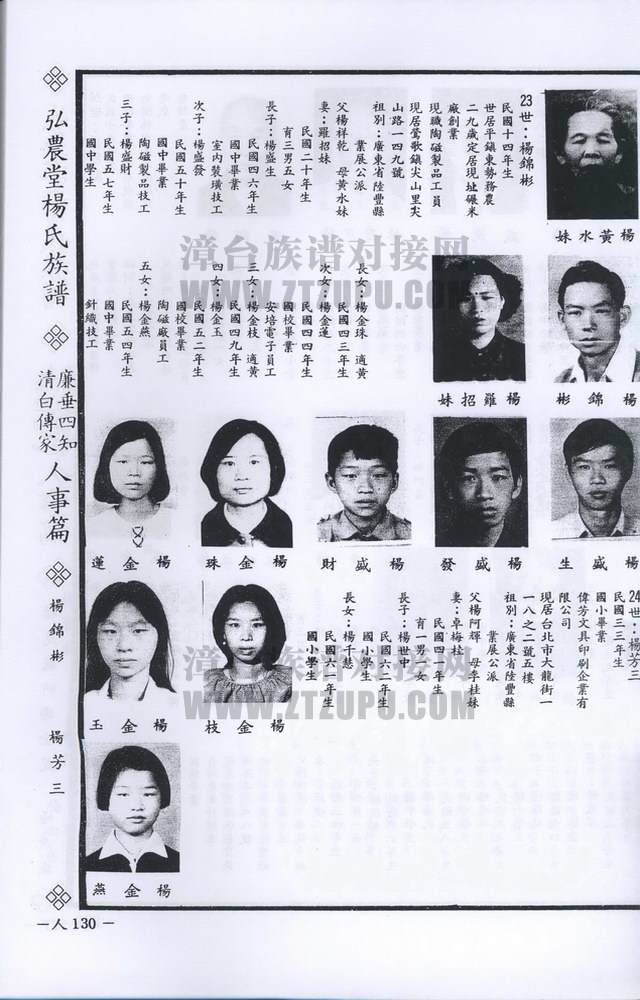 弘農堂楊氏族譜
清白傳家
廉垂四知
人事篇
楊錦彬
楊芳三
23世：楊錦彬
民國十四年生
世居平鎮東勢務農
二九歲定居現址碾米
廠創業
現職陶磁製品工員
現居鶯歌鎮尖山里尖
山路一四九號
祖別：廣東省陸豐縣
業展公派
父楊祥乾　母黃水妹
妻：羅招妹
民國二十年生
育三男五女
長子：楊盛生
民國四六年生
國中畢業
室內裝璜技工
次子：楊盛發
民國五十年生
國中畢業
陶磁製品技工
三子：楊盛財
民國五七年生
國中學生
楊黃水妹
長女：楊金珠　適黃
民國四三年生
次女：楊金蓮
民國四四年生
國校畢業
安培電子員工
三女：楊金枝　適黃
民國四九年生
四女：楊金玉
民國五二年生
國校畢業
陶磁廠員工
五女：楊金燕
民國五四年生
國中畢業
針織技工
楊羅招妹
楊錦彬
楊金蓮
楊金珠
楊盛財
楊盛發
楊盛生
24世：楊芳三
民國三三年生
國小畢業
偉芳文具印刷企業有
限公司
現居台北市大龍街一
一八之二號五樓
祖別：廣東省陸豐縣
業展公派
父楊阿輝　母李桂妹
妻：卓梅枝
民國四一年生
育一男一女
長子：楊世中
民國六二年生
國小學生
長女：楊千慧
民國六一年生
國小學生
楊金玉
楊金枝
楊金燕
－人130－
漳台族谱对接网
WWW.ZTZUPU.COM
漳台族谱对接网
WWW.ZTZUPU.COM